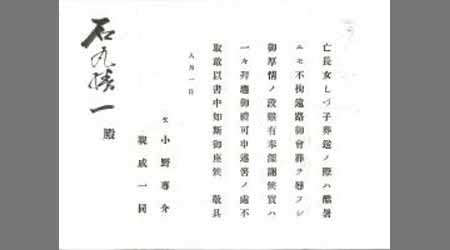 亡長女しづ子葬送ノ際ハ酷暑
ニモ不拘遠路御會葬ヲ辱フシ
御厚情ノ段難有奉深謝候實ハ
一々拜趨御禮可申述筈ノ處不
取敢以書中如斯御座候 敬具
八月一日
父 小野專介
親戚一同
石丸勝一殿